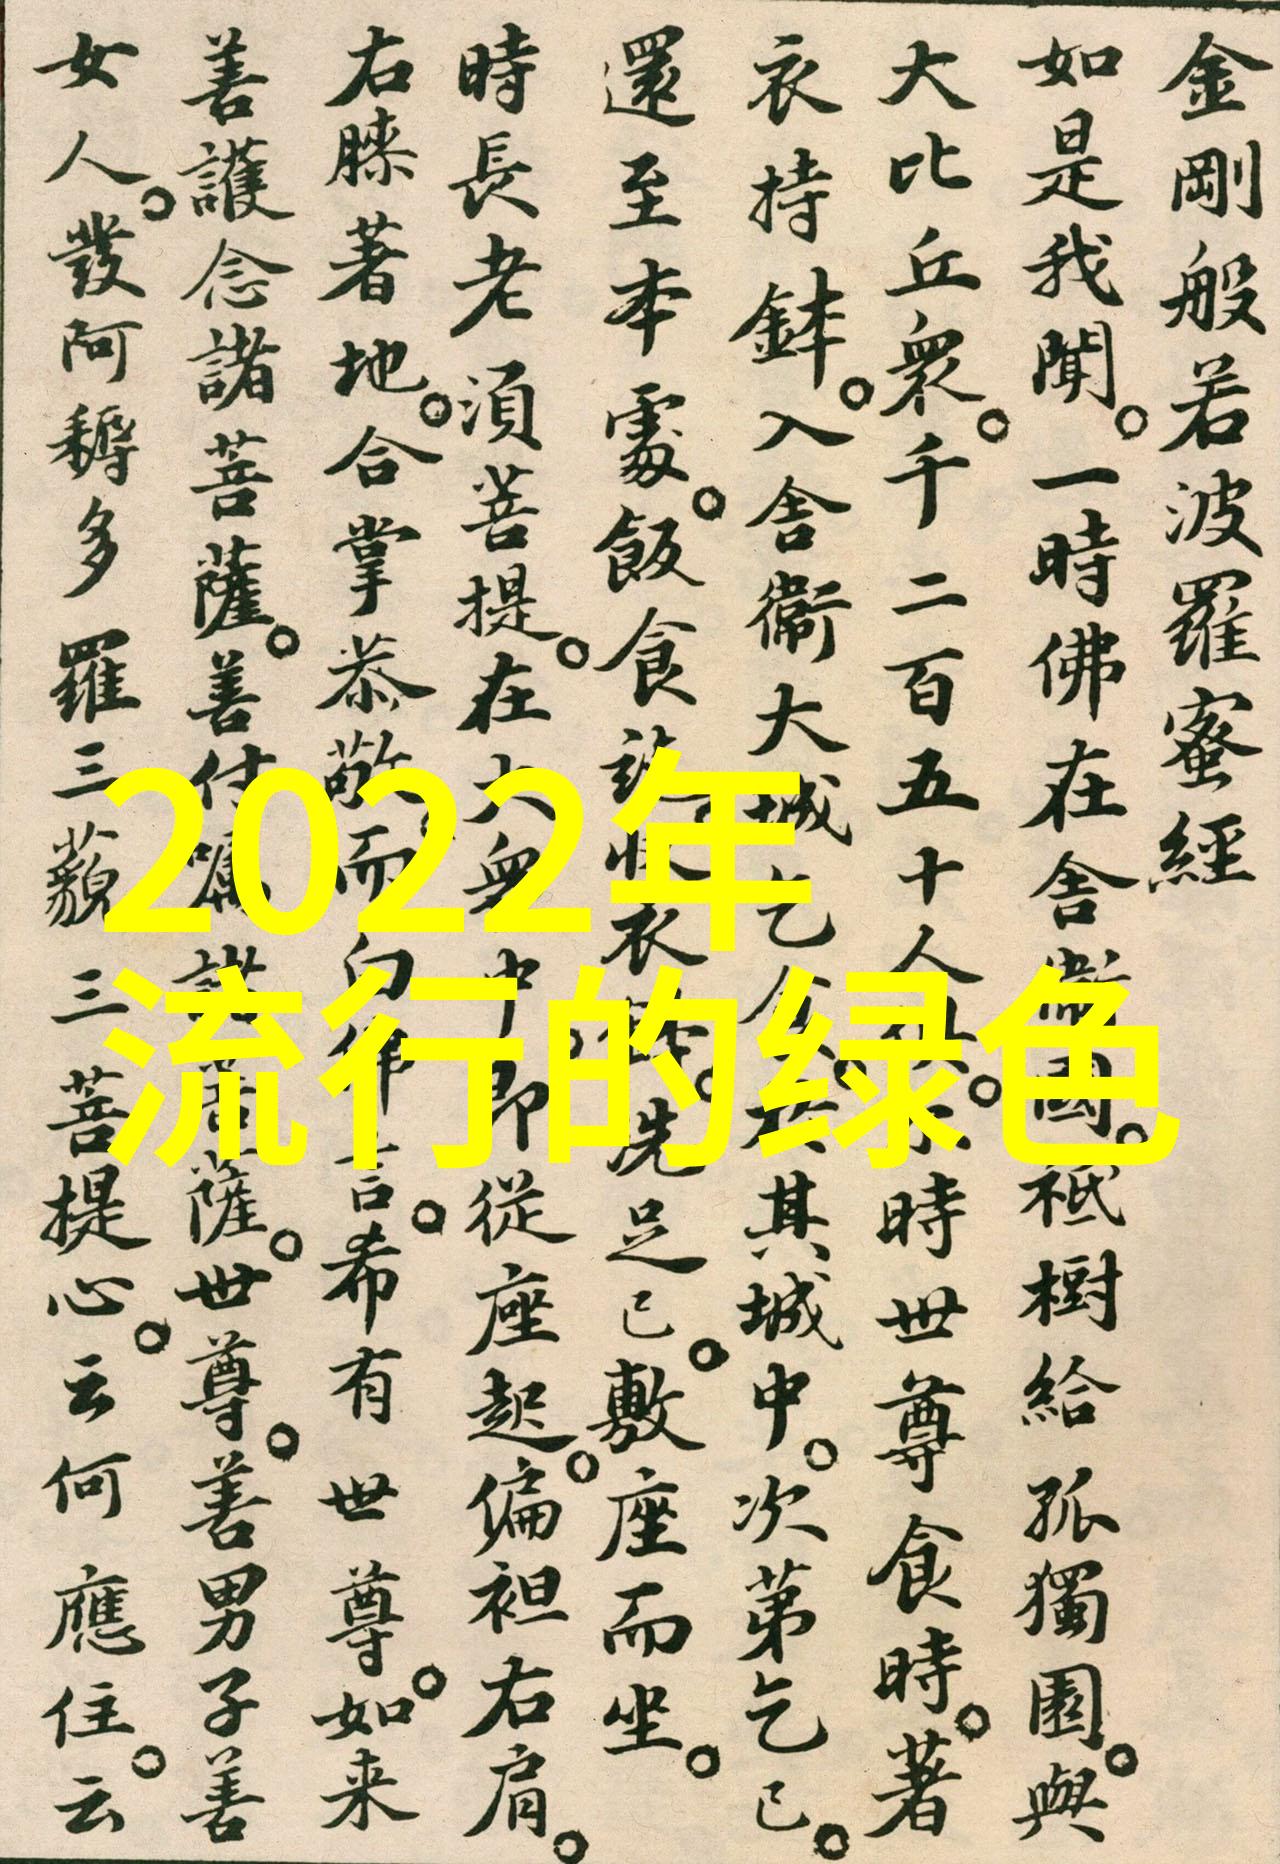 金剛般若波羅蜜經
如是我聞。一時佛在舍衛國。祇樹給孤獨園。與
大比丘衆。千二百五十人俱。尒時世尊食時。著
衣持鉢。入舍衛大城乞食。於其城中。次第乞已。
還至本處。飯食訖。收衣鉢。洗足已。敷座而坐。
時長老須菩提。在大衆中。即從座起。偏袒右肩。
右膝著地。合掌恭敬。而白佛言。希有世尊。如来
善護念諸菩薩。善付囑諸菩薩。世尊。善男子善
女人。發阿耨多羅三藐三菩提心。云何應住。云
2022年
流行的绿色